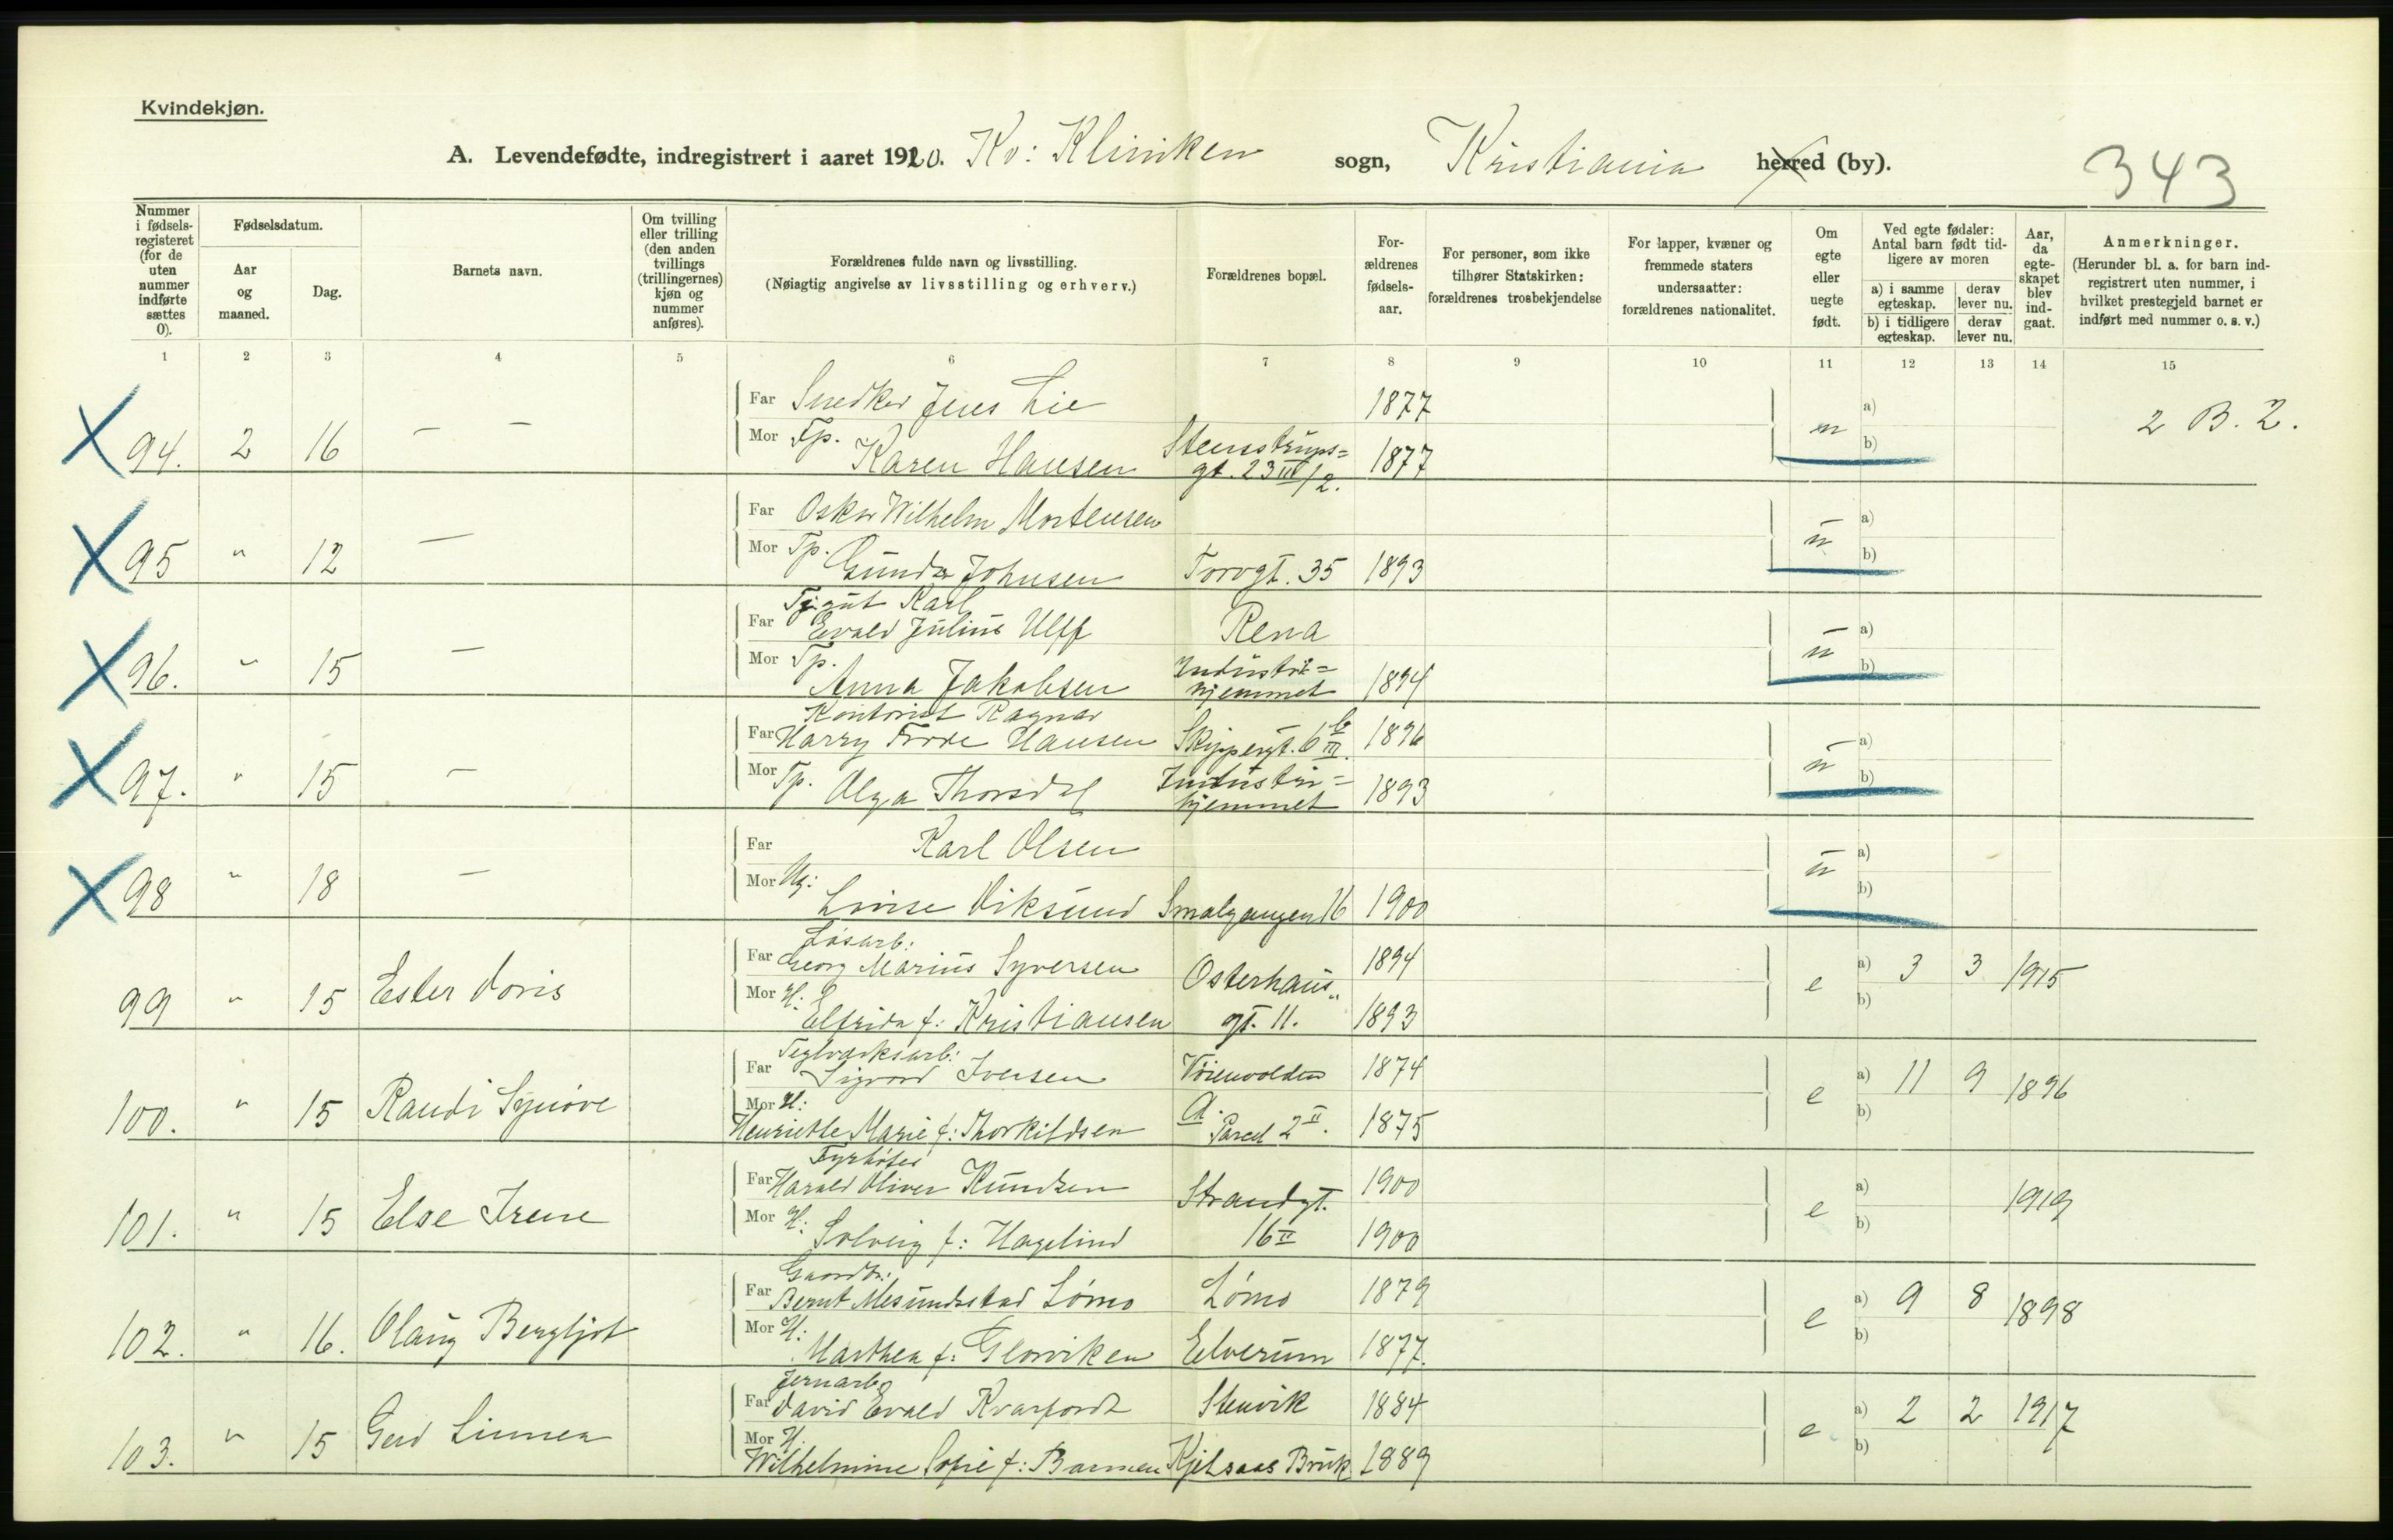 Kvindekjøn.
A. Levendefødte, indregistrert i aaret 1920. Kv: Kliniken sogn, Kristiania herred (by).
343
Nummer i fødsels-registeret (for de uten nummer indførte sættes 0).
Fødselsdatum.
Aar og maaned.
Dag.
Barnets navn.
Om tvilling eller trilling (den anden tvillings (trillingernes) kjøn og nummer anføres).
Forældrenes fulde navn og livsstilling.
(Nøiagtig angivelse av livsstilling og erhverv.)
Forældrenes bopæl.
For-ældrenes fødsels-aar.
For personer, som ikke tilhører Statskirken: forældrenes trosbekjendelse
For lapper, kvæner og fremmede staters undersaatter: forældrenes nationalitet.
Om egte eller uegte født.
Ved egte fødsler: Antal barn født tid-ligere av moren
a) i samme egteskap.
derav lever nu.
b) i tidligere egteskap.
derav lever nu.
Aar, da egte-skapet blev ind-gaat.
Anmerkninger.
(Herunder bl. a. for barn ind-registrert uten nummer, i hvilket prestegjeld barnet er indført med nummer o. s. v.)
1 2 3 4 5 6 7 8 9 10 11 12 13 14 15
Far Snedker Jens Lie 1877 a)
94. 2 16 — — Mor Tp. Karen Hansen Stensstrups=gt. 23 III/2. 1877 u b) 2 B. 2.
Far Oskar Wilhelm Mortensen a)
95 " 12 — Mor Tp. Gunda Johnsen Torvgt. 35 1893 u b)
Far Karl Evald Julius Ulff Rena a)
96. " 15 — Mor Tp. Anna Jakobsen Industri=hjemmet 1894 u b)
Kontorist Ragnar
Far Harry Frode Hansen Skippergt. 6 b III. 1896 a)
97. " 15 — Mor Tp. Olga Thorsdal Industri=hjemmet 1893 u b)
Far Karl Olsen a)
98 " 18 — Mor Ug: Lovise Viksund Smalgangen 16 1900 u b)
Løsarb:
Far Georg Marius Syversen Osterhaus" 1894 a) 3 3 1915
99 " 15 Ester Doris Mor H: Elfrida f: Kristiansen gt. 11. 1893 e b)
Teglverksarb:
Far Sigvard Iversen Vøienvolden 1874 a) 11 9 1896
100. " 15 Randi Synøve Mor H: Henriette Marie f: Thorkildsen A. Parcel 2 II. 1875 e b)
Fyrbøter
Far Harald Oliver Knudsen Strandgt. 1900 a) 1919
101. " 15 Else Irene Mor H: Solveig f: Hagelind 16 II 1900 e b)
Gaardbr:
Far Bernt Mesundstad Lømo Lømo 1879 a) 9 8 1898
102. " 16. Olaug Bergljot Mor H: Marthea f: Glorviken Elverum 1877. e b)
Jernarb.
Far David Evald Kvarfordt Stenvik 1884 a) 2 2 1917
103. " 15 Gerd Linnea Mor H. Wilhelmine Sofie f: Barmen Kjelsaas Bruk 1889 e b)